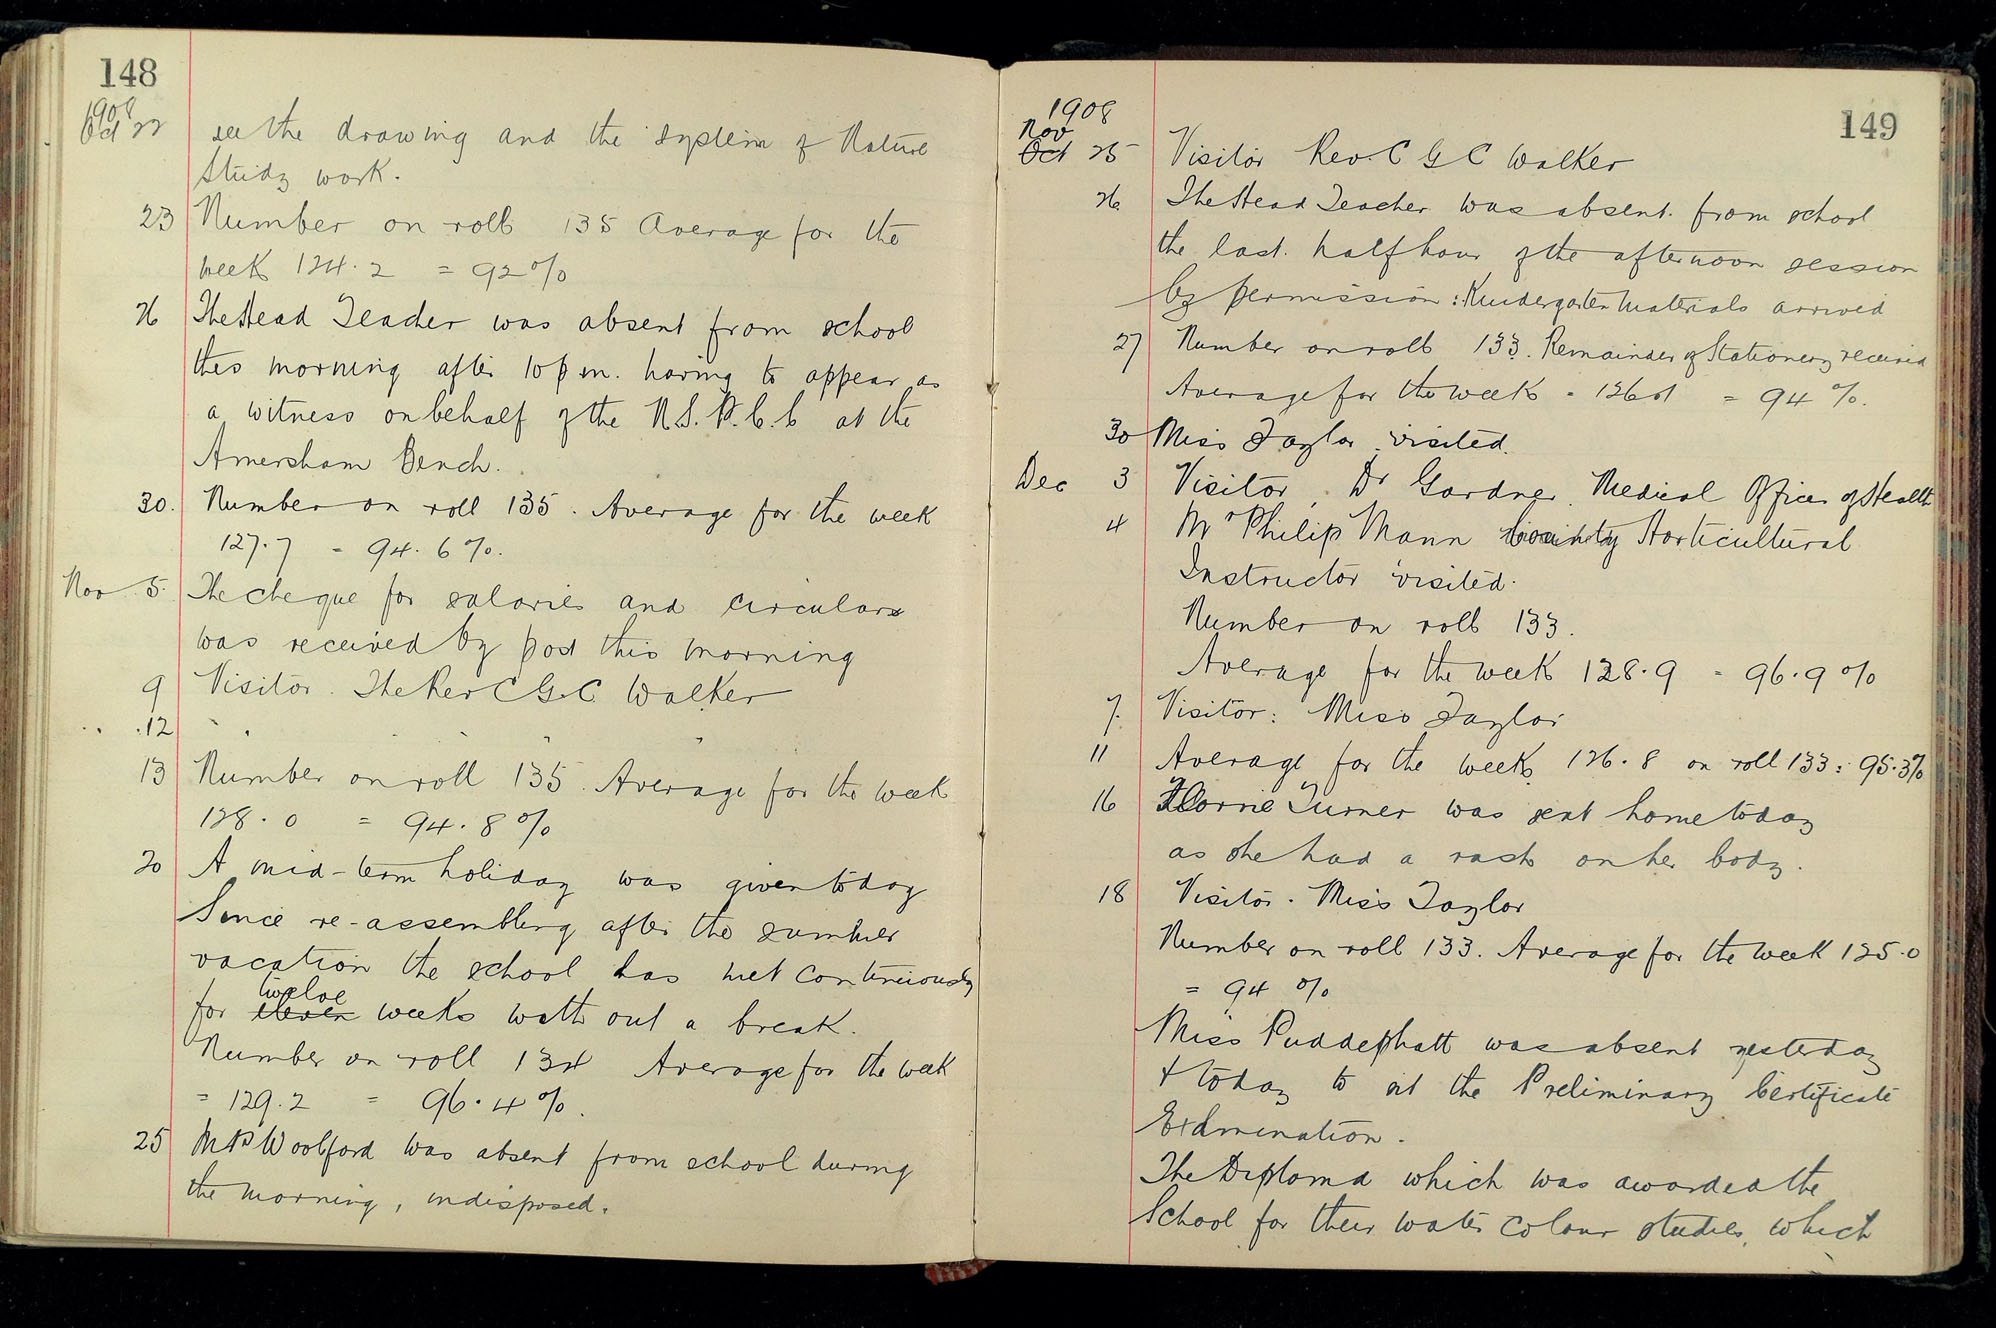 148
1908
Oct 22 see the drawing and the system of Nature
Study work.
23 Number on roll 135 Average for the
week 124.2 = 92%
26 The Head Teacher was absent from school
this morning after 10 p.m. having to appear as
a witness on behalf of the N.S.P.C.C at the
Amersham Bench.
30. Number on roll 135. Average for the week
127.7 = 94.6%.
Nov 5. The cheque for salaries and circulars
was received by post this morning
9 Visitor. The Rev C G. C. Walker
" 12 " " " "
13 Number on roll 135. Average for the week
128.0 = 94.8%
20 A mid-term holiday was given today
Since re-assembling after the summer
vacation the school has met continuously
twelve
for eleven weeks with out a break.
Number on roll 134 Average for the week
= 129.2 = 96.4%.
25 Woolford was absent from school during
the morning, indisposed.
149
1908
Nov
Oct 25 Visitor Rev. C G C Walker
26 The Head Teacher was absent from school
the last half hour of the afternoon session
by permission: Kindergarten Materials arrived
27 Number on roll 133. Remainder of Stationery received
Average for the week = 126.1 = 94%.
30 Miss Taylor visited.
Dec 3 Visitor, Dr Gardner, Medical Officer of Health
4 Mr Philip Mann County Horticultural
Instructor visited.
Number on roll 133.
Average for the week 128.9 = 96.9%
7. Visitor: Miss Taylor
11 Average for the week 126.8 on roll 133 = 95.3%
16 Florrie Turner was sent home today
as she had a rash on her body.
18 Visitor. Miss Taylor
Number on roll 133. Average for the week 125.0
= 94 %
Miss Puddephatt was absent yesterday
+ today to sit the Preliminary Certificate
Examination.
The Diploma which was awarded the
School for their water colour studies, which